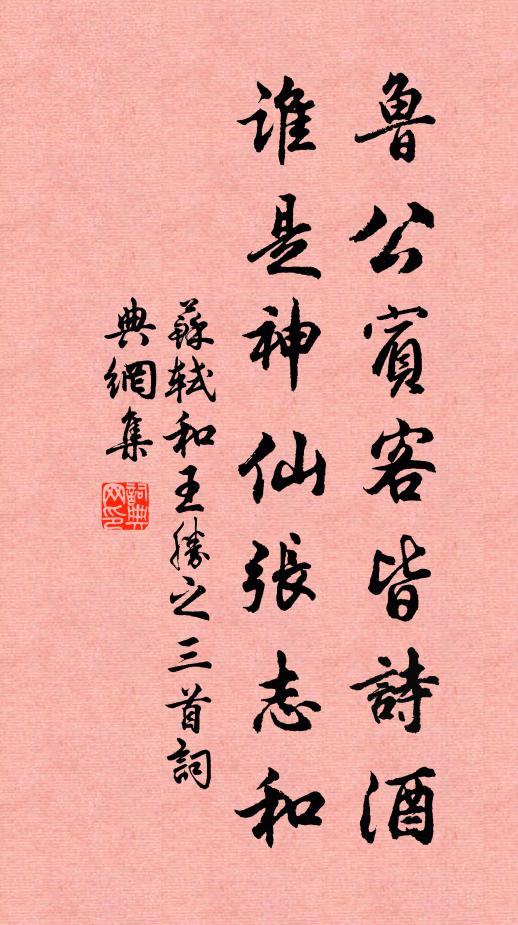 魯公賓客皆詩酒
誰是神仙張志和
蘇軾和王勝之三首詞
典網集
詞典
网印